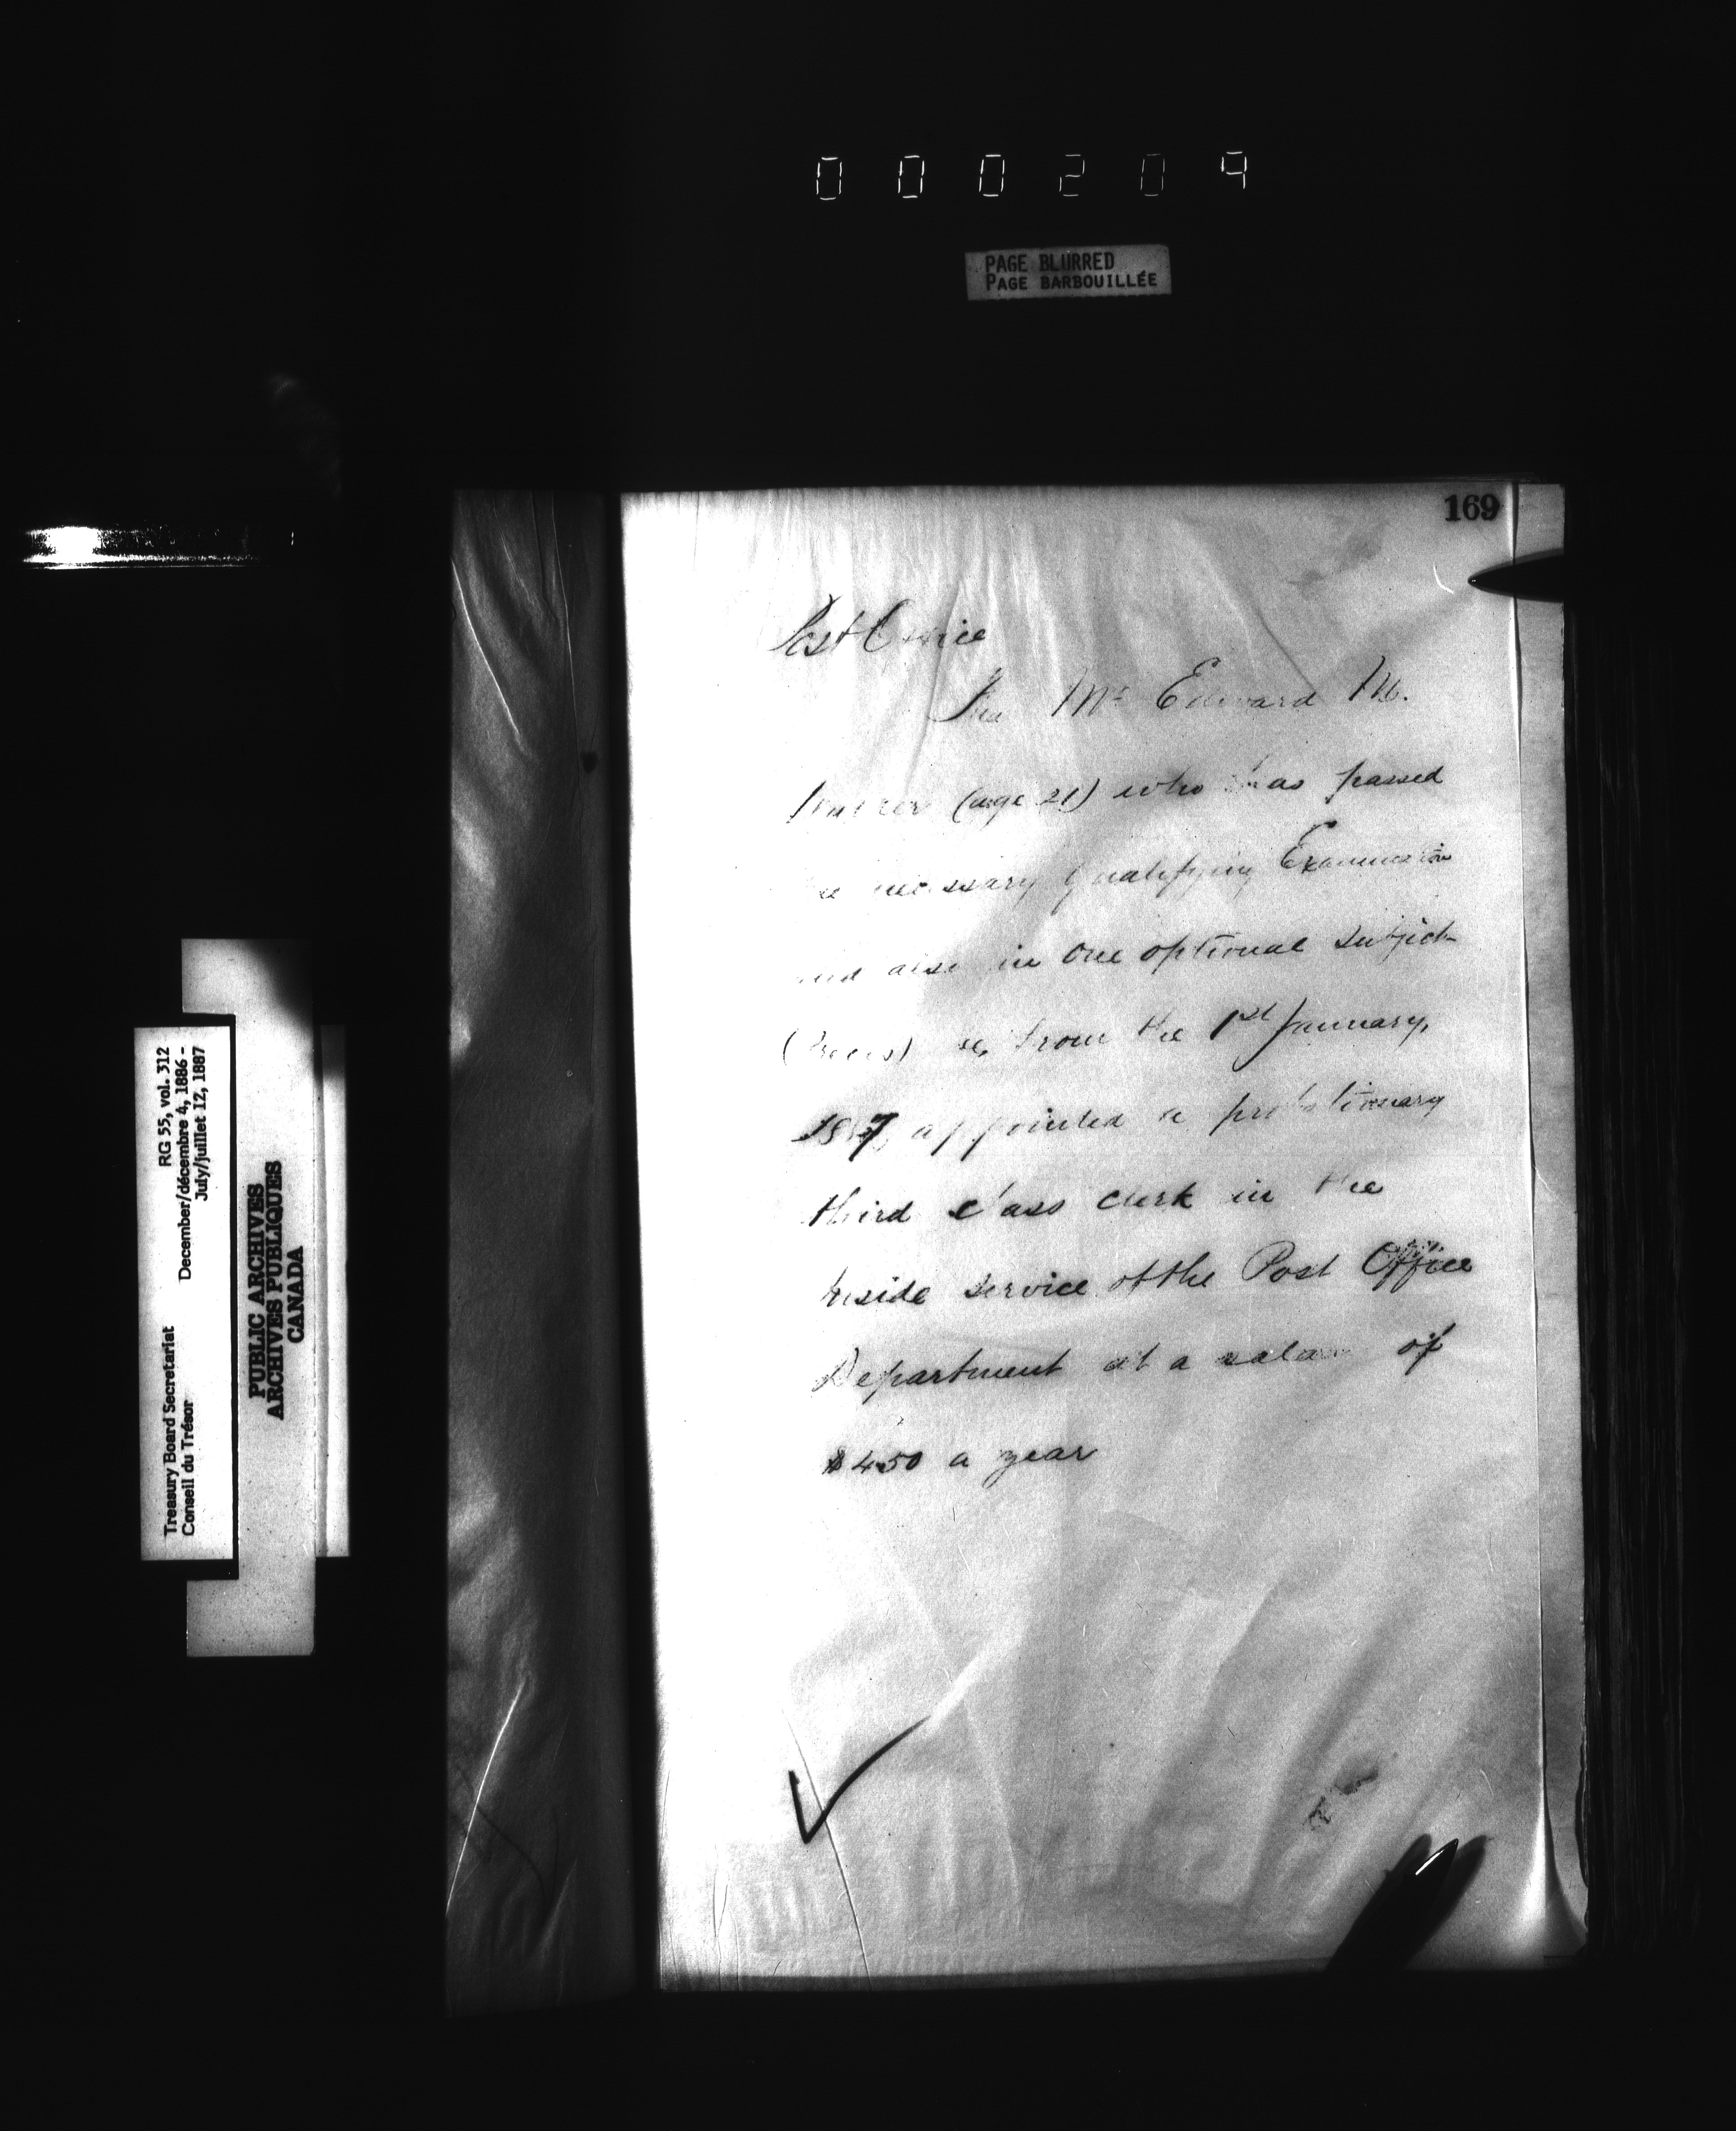 000209
PAGE BLURRED
PAGE BARBOUILLÉE
169
Post Office
That Mr Edward M.
(age 21) who has passed
the necessary Qualifying Examination
and also in one optional subject
(Precis) be, from the 1st January,
1887, appointed a probationary
third class clerk in the
Inside service of the Post Office
Department at a salary of
$450 a year
Treasury Board Secretariat RG 55, vol. 312
Conseil du Trésor December/décembre 4, 1886 -
July/juillet 12, 1887
PUBLIC ARCHIVES
ARCHIVES PUBLIQUES
CANADA